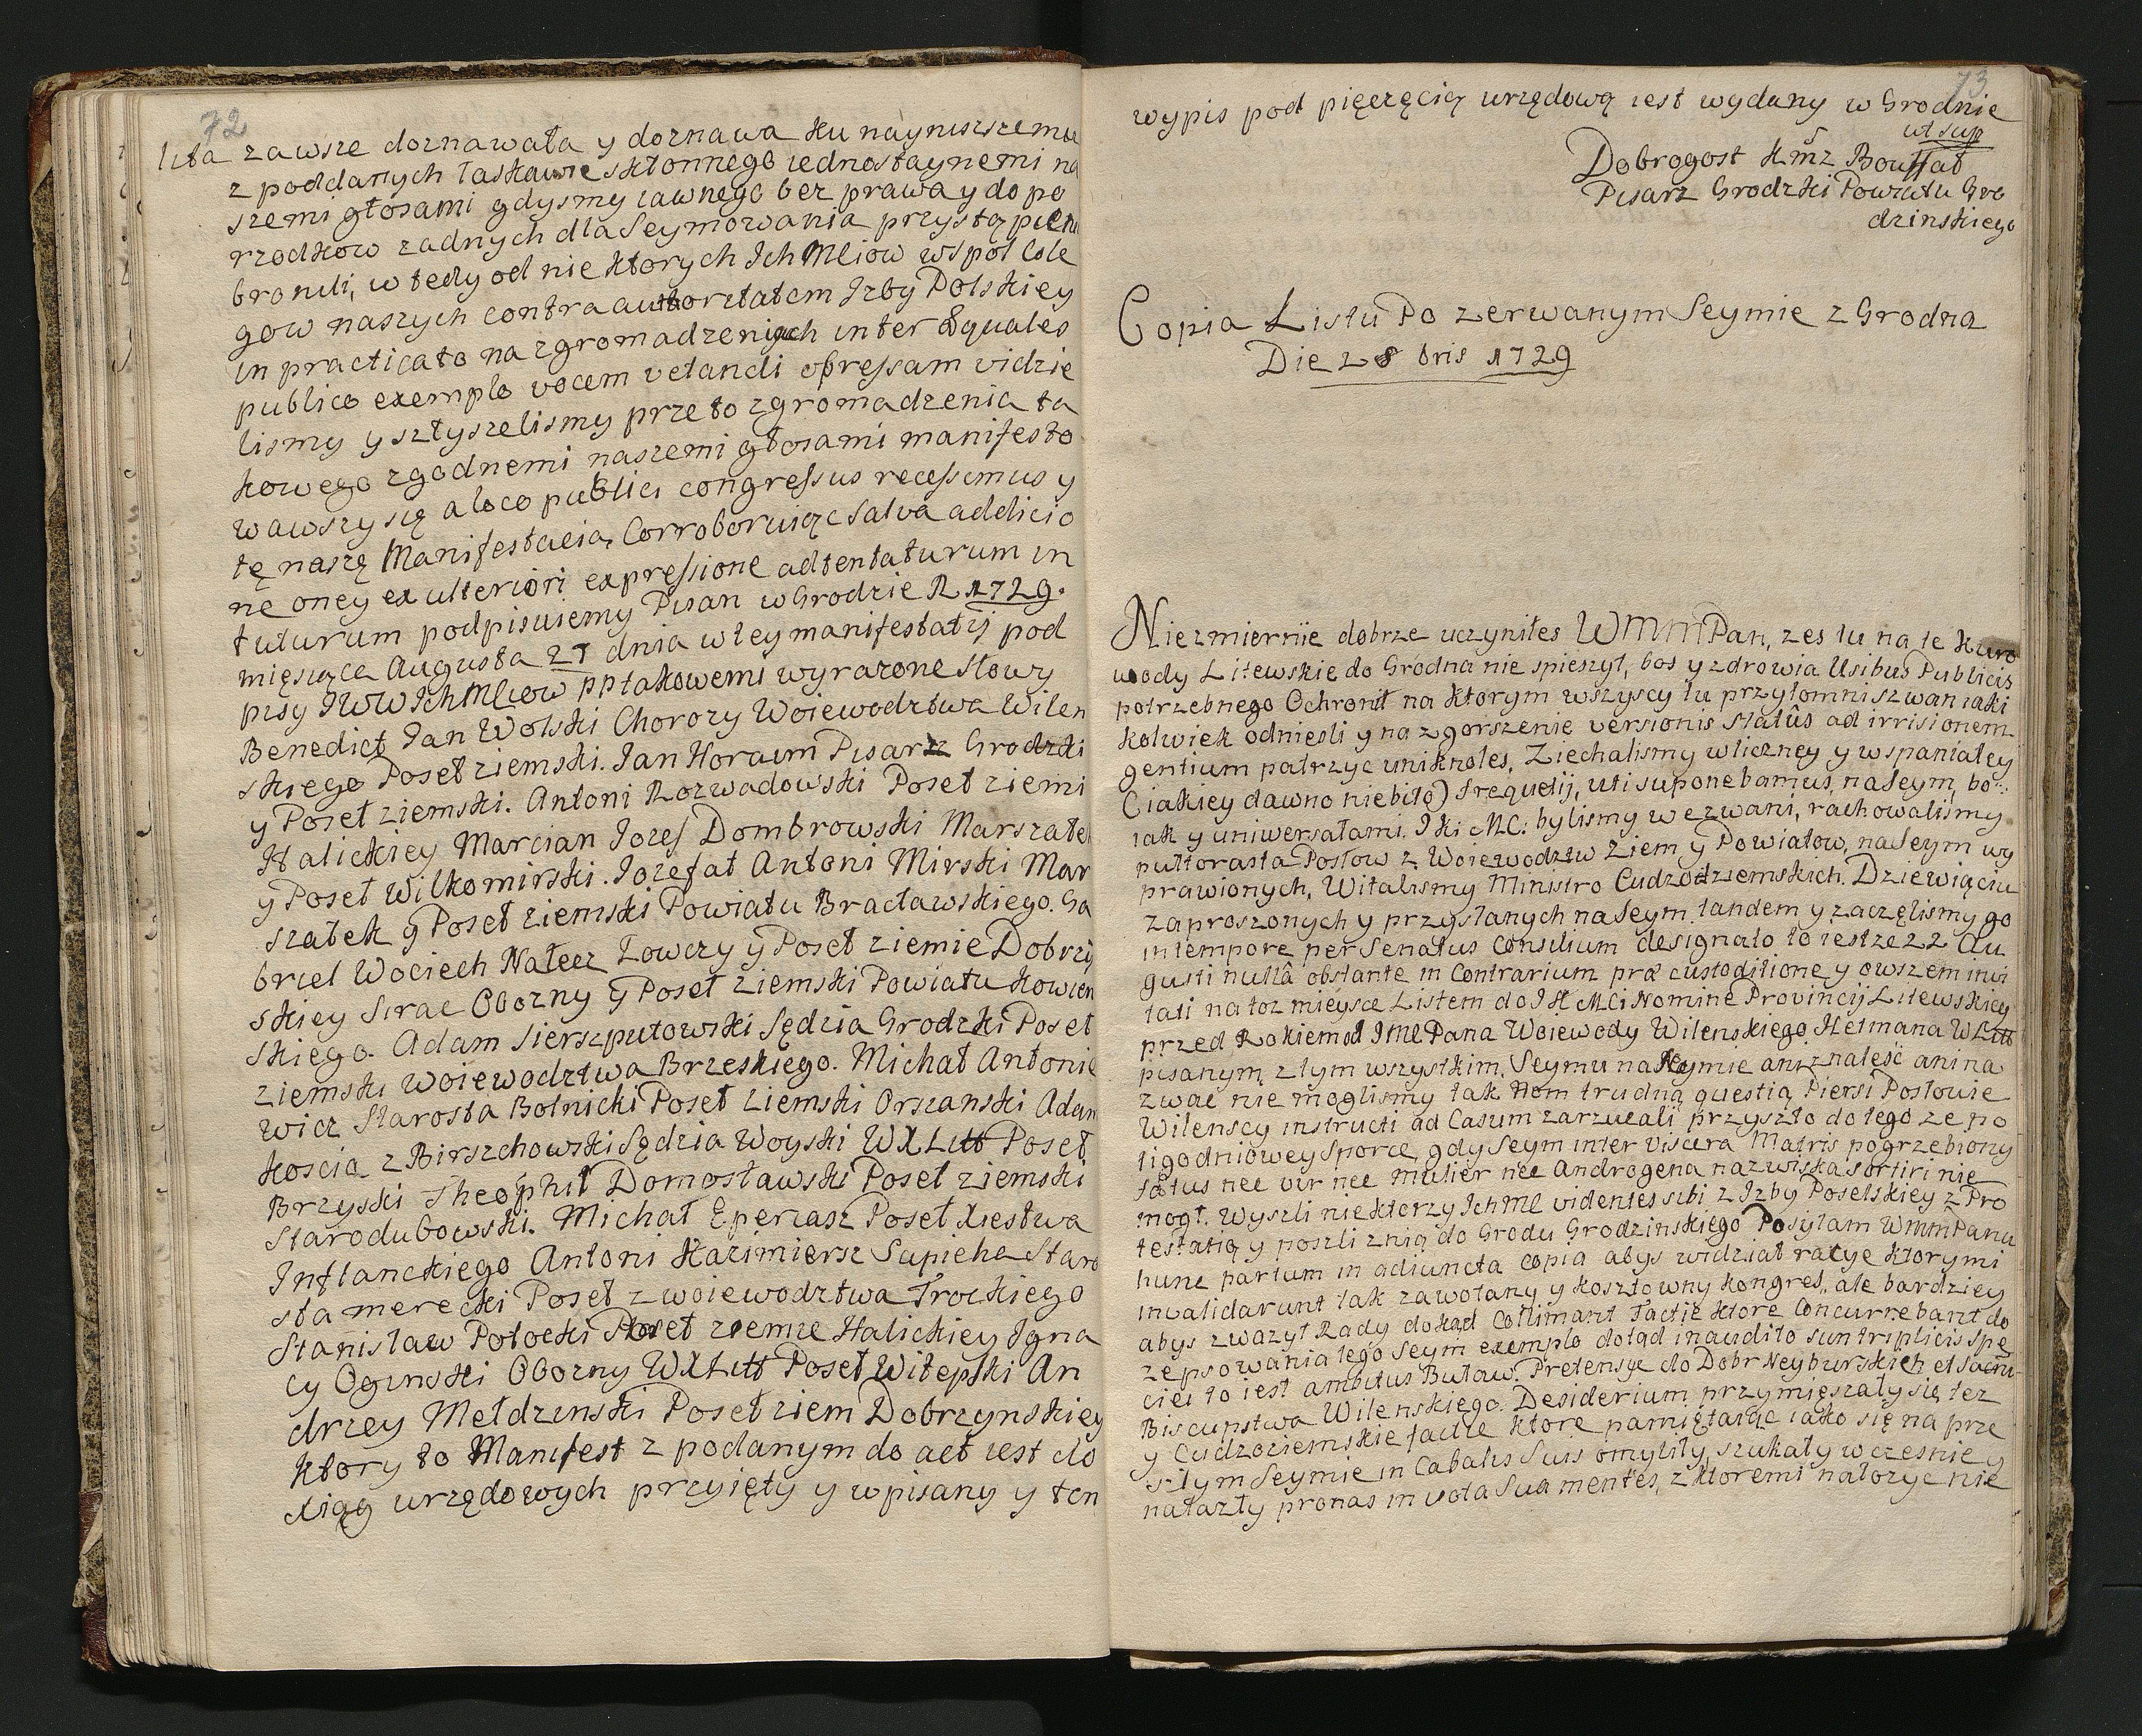 72
lita zawsze doznawała y doznawa ku nayniższemu
z poddanych łaskawie skłonnego iednostaynemi na
szemi głosami gdysmy iawnego bez prawa y do po
rządkow żadnych dla Seymowania przystąpieniu
bronili, w tedy od nie ktorych Ich Mciow wspoł Cole
gow naszych contra authoritatem Izby Polskiey
in practicato na zgromadzeniach inter Equales
publico exemplo vocem vetandi opressam vidzie
lismy y sztyszelismy przeto zgromadzenia ta
kowego zgodnemi naszemi głosami manifesto
wawszy się a loco publici congressus recessimus y
tę naszę Manifestacią Corroboruiąc salva addicio
ne oney ex ulteriori expressione ad tentaturum in
tuturum podpisuiemy Pisan w Grodzie R 1729.
miesiąca Augusta 27 dnia w tey manifestatij pod
pisy JWW Ich Mciow pp takowemi wyrazone słowy
Benedict Jan Wolski Chorozy Woiewodztwa Wilen
skiego Poseł ziemski. Jan Horaim Pisarz Grodzki
y Poseł ziemski. Antoni Rozwadowski Poseł ziemi
Halickiey Marcian Jozef Dombrowski Marszałek
y Poseł Wilkomirski. Jozefat Antoni Mirski Mar
szałek y Poseł ziemski Powiatu Bracławskiego. Ga
briel Wociech Nałecz Łowczy y Poseł ziemie Dobrzy
skiey Sirac Obozny y Poseł Ziemski Powiatu Kowien
skiego. Adam Sierszputowski Sędzia Grodzki Poseł
ziemski Woiewodztwa Brzeskiego. Michał Antonie
wicz Starosta Bolnicki Poseł Ziemski Orszanski Adam
Koscia z Birszchowski Sędzia Woyski WXLitt Poseł
Brzyski Theophil Domosławski Poseł ziemski
Starodubowski. Michał Eperiasz Poseł Xiestwa
Inflanckiego Antoni Kazimiersz Sapieha Staro
sta merecki Poseł z woiewodztwa Trockiego
Stanisław Potocki Poseł ziemie Halickiey Igna
cy Oginski Obozny WXLitt Poseł Witepski An
drzey Mełdzinski Poseł ziem Dobrzynskiey
ktory to Manifest z podanym do act iest do
xiąg urzędowych przyięty y wpisany y ten
73
wypis pod pięczęcią urzędową iest wydany w Grodnie
ut sup
Dobrogost Kmz Bouffał
Pisarz Grodzki Powiatu Gro
dzinskiego
Copia Listu Po zerwanym Seymie z Grodna
Die 2 8bris 1729
Niezmiernie dobrze uczyniłes WMMPan, zes tu na te kuro
wody Litewskie do Grodna nie spieszył, bos y zdrowia Usibus Publicis
potrzebnego Ochronił na ktorym wszyscy tu przytomni szwan iaki
kolwiek odniesli y na zgorszenie versionis statûs ad irrisionem
gentium patrzyc uniknołes, Ziechalismy w liczney y wspaniałey
(iakiey dawno niebiło) frequetij, uti suponebamus, na Seym, bo
iak y uniwersałami. J Ki MC: bylismy wezwani, rachowalismy
pułtorasta Posłow z Woiewodztw Ziem y Powiatow, na Seym wy
prawionych, Witalismy Ministro Cudzodziemskich. Dziewiąciu
zaproszonych y przysłanych na Seym, tandem y zaczęlismy go
in tempore per Senatus Consilium designato to iest ze 22 Au
gusti nullâ obstante in Contrarium præ custoditione y owszem invi
tati na toz mieysce Listem do J K MCi Nomine Provincij Litewskiey
przed Rokiem od JMC Pana Woiewody Wilenskiego Hetmana WLitt
pisanym, z tym wszystkim, Seymu na Seymie ani znalesć ani na
zwać nie moglismy tak Nam trudną questią Piersi Posłowie
Wilenscy instructi ad Casum zarzucali, przyszło do tego ze po
tigodniowey sporce, gdy Seym inter viscera Matris pogrzebiony
fætus nec vir nec Mulier nec Androgena nazwiska sortiri nie
mogł. Wyszli niektorzy Ich MC videntes sibi z Izby Poselskiey z Pro
testatią y poszli z nią do Grodu Grodzinskiego Posyłam WmmPanu
hunc partum in adiuncta copia abys widział ratye ktorymi
invalidarunt tak zawołany y kosztowny kongres, ale bardziey
abys zwazył Rady dokąd Collimant Factie ktore Concurrebant do
zepsowania tego Seym exemplo dotąd inaudito sun triplicis spe
ciei to iest ambitus Buław. Pretensye do Dobr Neyburskich et Sacri
Biscupstwa Wilenskiego. Desiderium przymięszały się tez
y Cudzoziemskie factie ktore pamiętaiąc iako się na prze
szłym Seymie in Cabalis suis omyliły, szukały wczesnie y
nalazły pronas in vota sua mentes, z ktoremi nałozyc nie